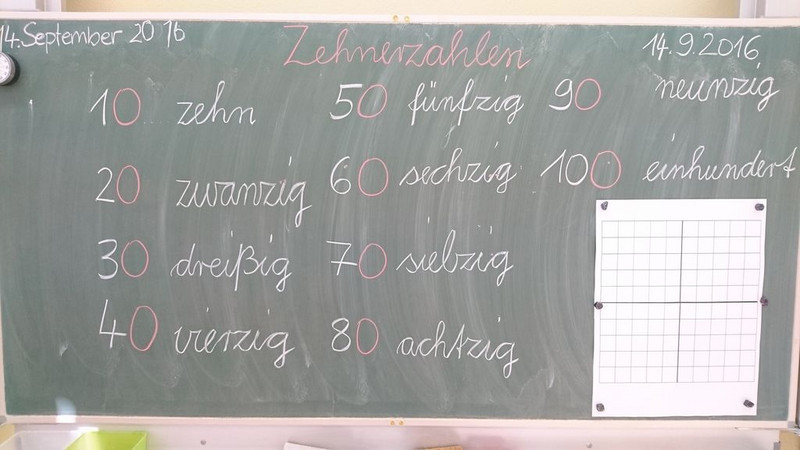 14. September 2016
Zehnerzahlen
14.9.2016
10 zehn
20 zwanzig
30 dreißig
40 vierzig
50 fünfzig
60 sechzig
70 siebzig
80 achtzig
90 neunzig
100 einhundert